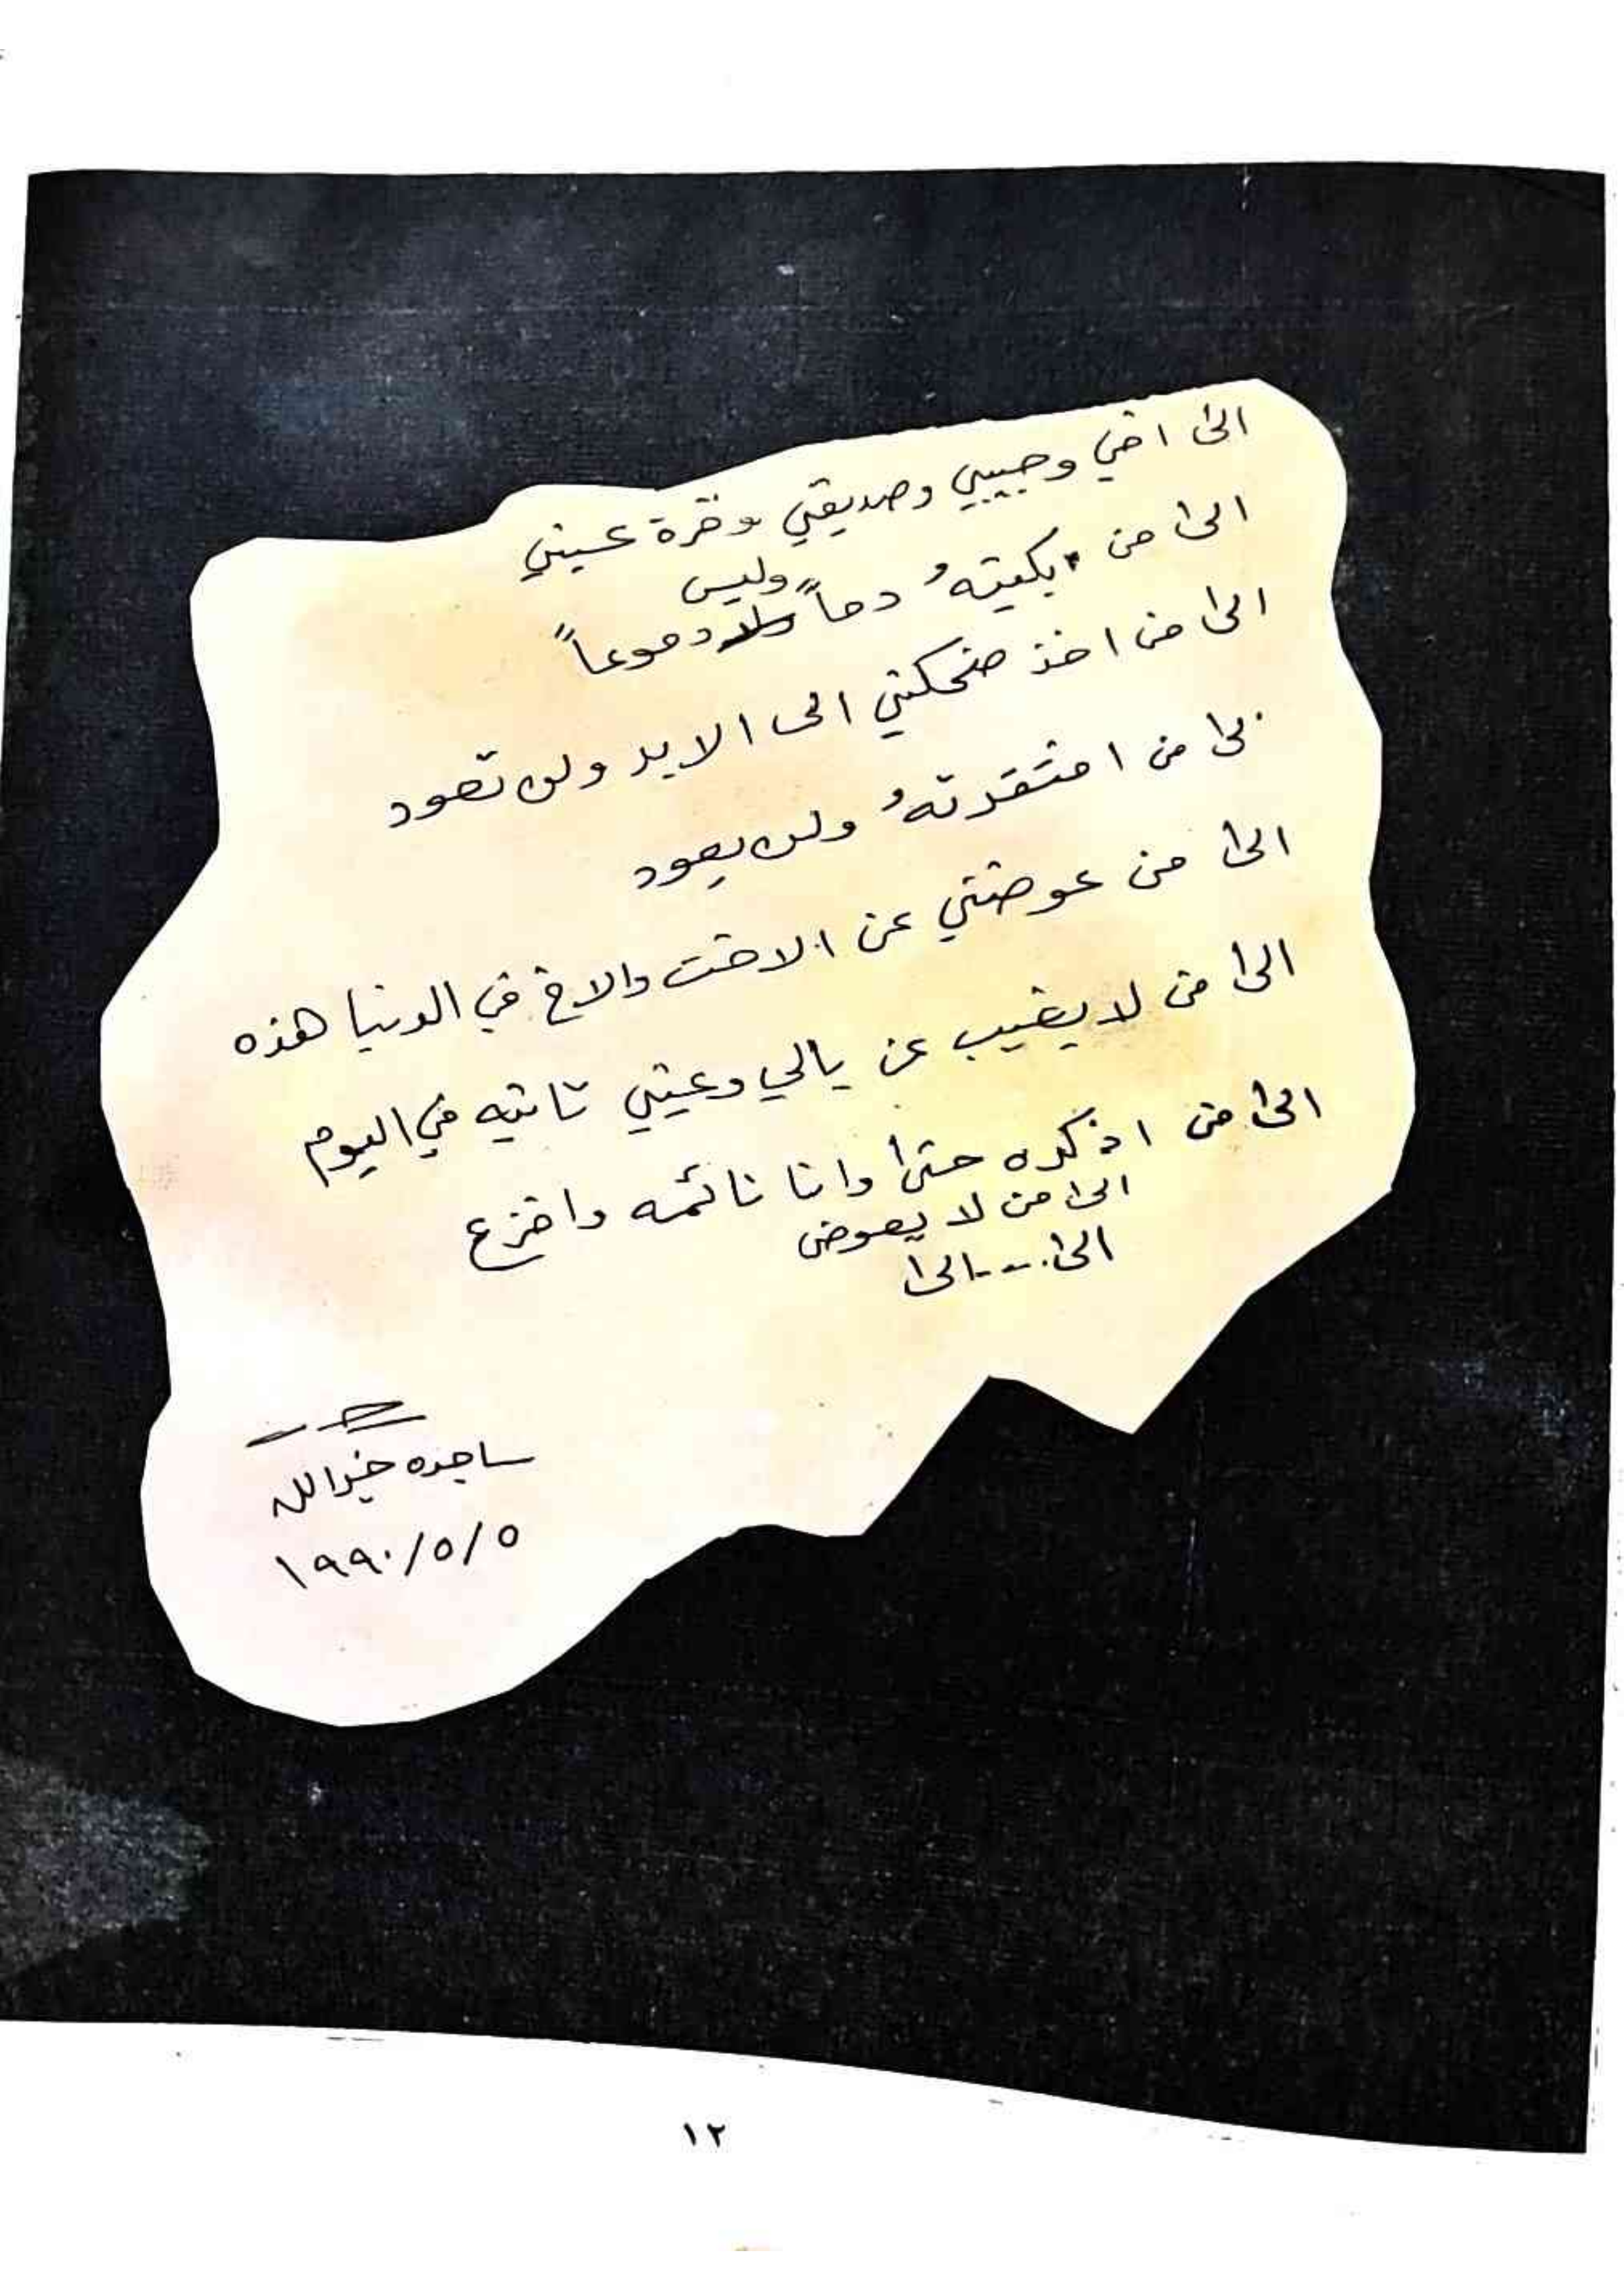 الى اخي وحبيبي وصديقي وقرة عيني
الى من بكيته دماً وليس دموعاً
الى من اخذ ضحكتي الى الابد ولن تعود
الى من افتقدتهُ ولن يعود
الى من عوضني عن الاخت والاخ في الدنيا هذه
الى من لا يغيب عن بالي وعيني ثانيه في اليوم
الى من اذكره حتى وانا نائمه وافزع
الى من لا يعوض
الى....الى
ساجده خيرالله
١٩٩٠/٥/٥
١٢